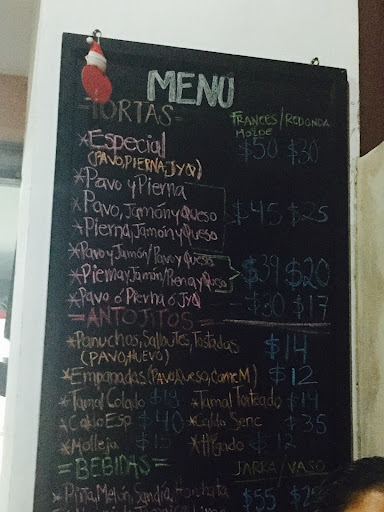 MENÚ
=TORTAS= FRANCES/REDONDA
MOLDE
*Especial $50 $30
(PAVO, PIERNA, JyQ)
*Pavo y Pierna
*Pavo, Jamón y Queso $45 $25
*Pierna, Jamón y Queso
*Pavo y Jamón/Pavo y Queso
*Pierna y Jamón/Pierna y Queso $39 $20
*Pavo ó Pierna ó JyQ $30 $17
=ANTOJITOS=
*Panuchos, Salbutes, Tostadas $14
(PAVO, HUEVO)
*Empanadas (Pavo, Queso, Carne M) $12
*Tamal Colado $18 *Tamal Torteado $14
*Caldo Esp $40 *Caldo Senc $35
*Molleja $15 *Hígado $12
=BEBIDAS= JARRA/VASO
*Piña, Melón, Sandía, Horchata $55